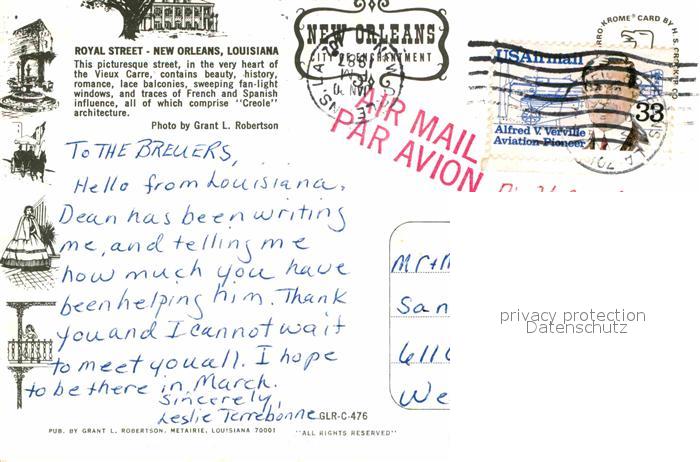 ROYAL STREET - NEW ORLEANS, LOUISIANA
This picturesque street, in the very heart of
the Vieux Carre, contains beauty, history,
romance, lace balconies, sweeping fan-light
windows, and traces of French and Spanish
influence, all of which comprise "Creole"
architecture.
Photo by Grant L. Robertson
NEW ORLEANS
CITY OF ENCHANTMENT
AIR MAIL
PAR AVION
USAirmail
33
Alfred V. Verville
Aviation Pioneer
KROME® CARD BY H.S. CROCKER CO.
To THE BREUERS,
Hello from Louisiana.
Dean has been writing
me, and telling me
how much you have
been helping him. Thank
you and I cannot wait
to meet you all. I hope
to be there in March.
Sincerely,
Leslie Terrebonne
Mr+
San
6110
We
privacy protection
Datenschutz
GLR-C-476
PUB. BY GRANT L. ROBERTSON, METAIRIE, LOUISIANA 70001
"ALL RIGHTS RESERVED"